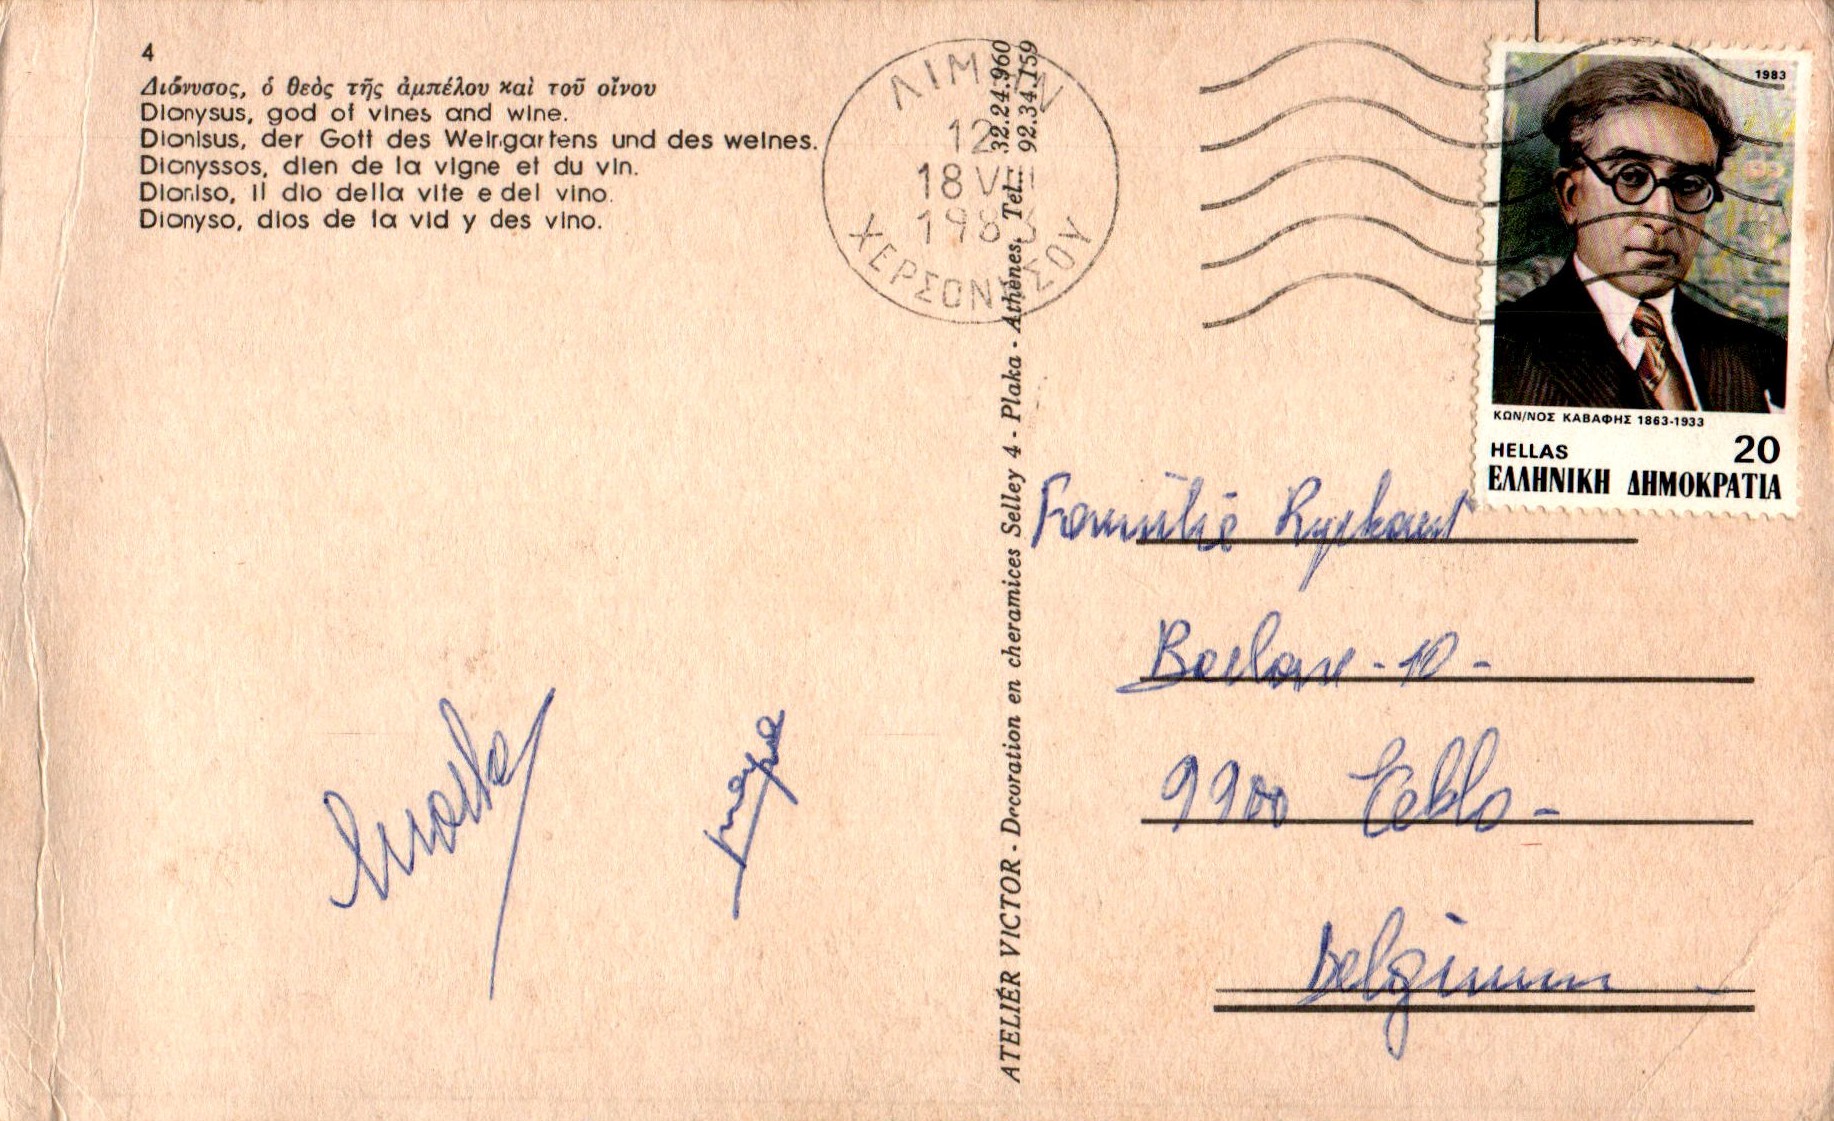 4
Διόνυσος, ὁ θεὸς τῆς ἀμπέλου καὶ τοῦ οἴνου
Dionysus, god of vines and wine.
Dionisus, der Gott des Weingartens und des weines.
Dionyssos, dien de la vigne et du vin.
Dioniso, il dio della vite e del vino.
Dionyso, dios de la vid y des vino.
ΛΙΜΗΝ
12
18 VIII
1983
ΧΕΡΣΟΝΗΣΟΥ
1983
ΚΩΝ/ΝΟΣ ΚΑΒΑΦΗΣ 1863-1933
HELLAS 20
ΕΛΛΗΝΙΚΗ ΔΗΜΟΚΡΑΤΙΑ
ATELIÉR VICTOR - Decoration en cheramices Selley 4 - Plaka - Athénes. Tel.. 32.24.960
92.34.159
Familie Ryckaert
Boelare - 10 -
9900 Eeklo -
Belgium